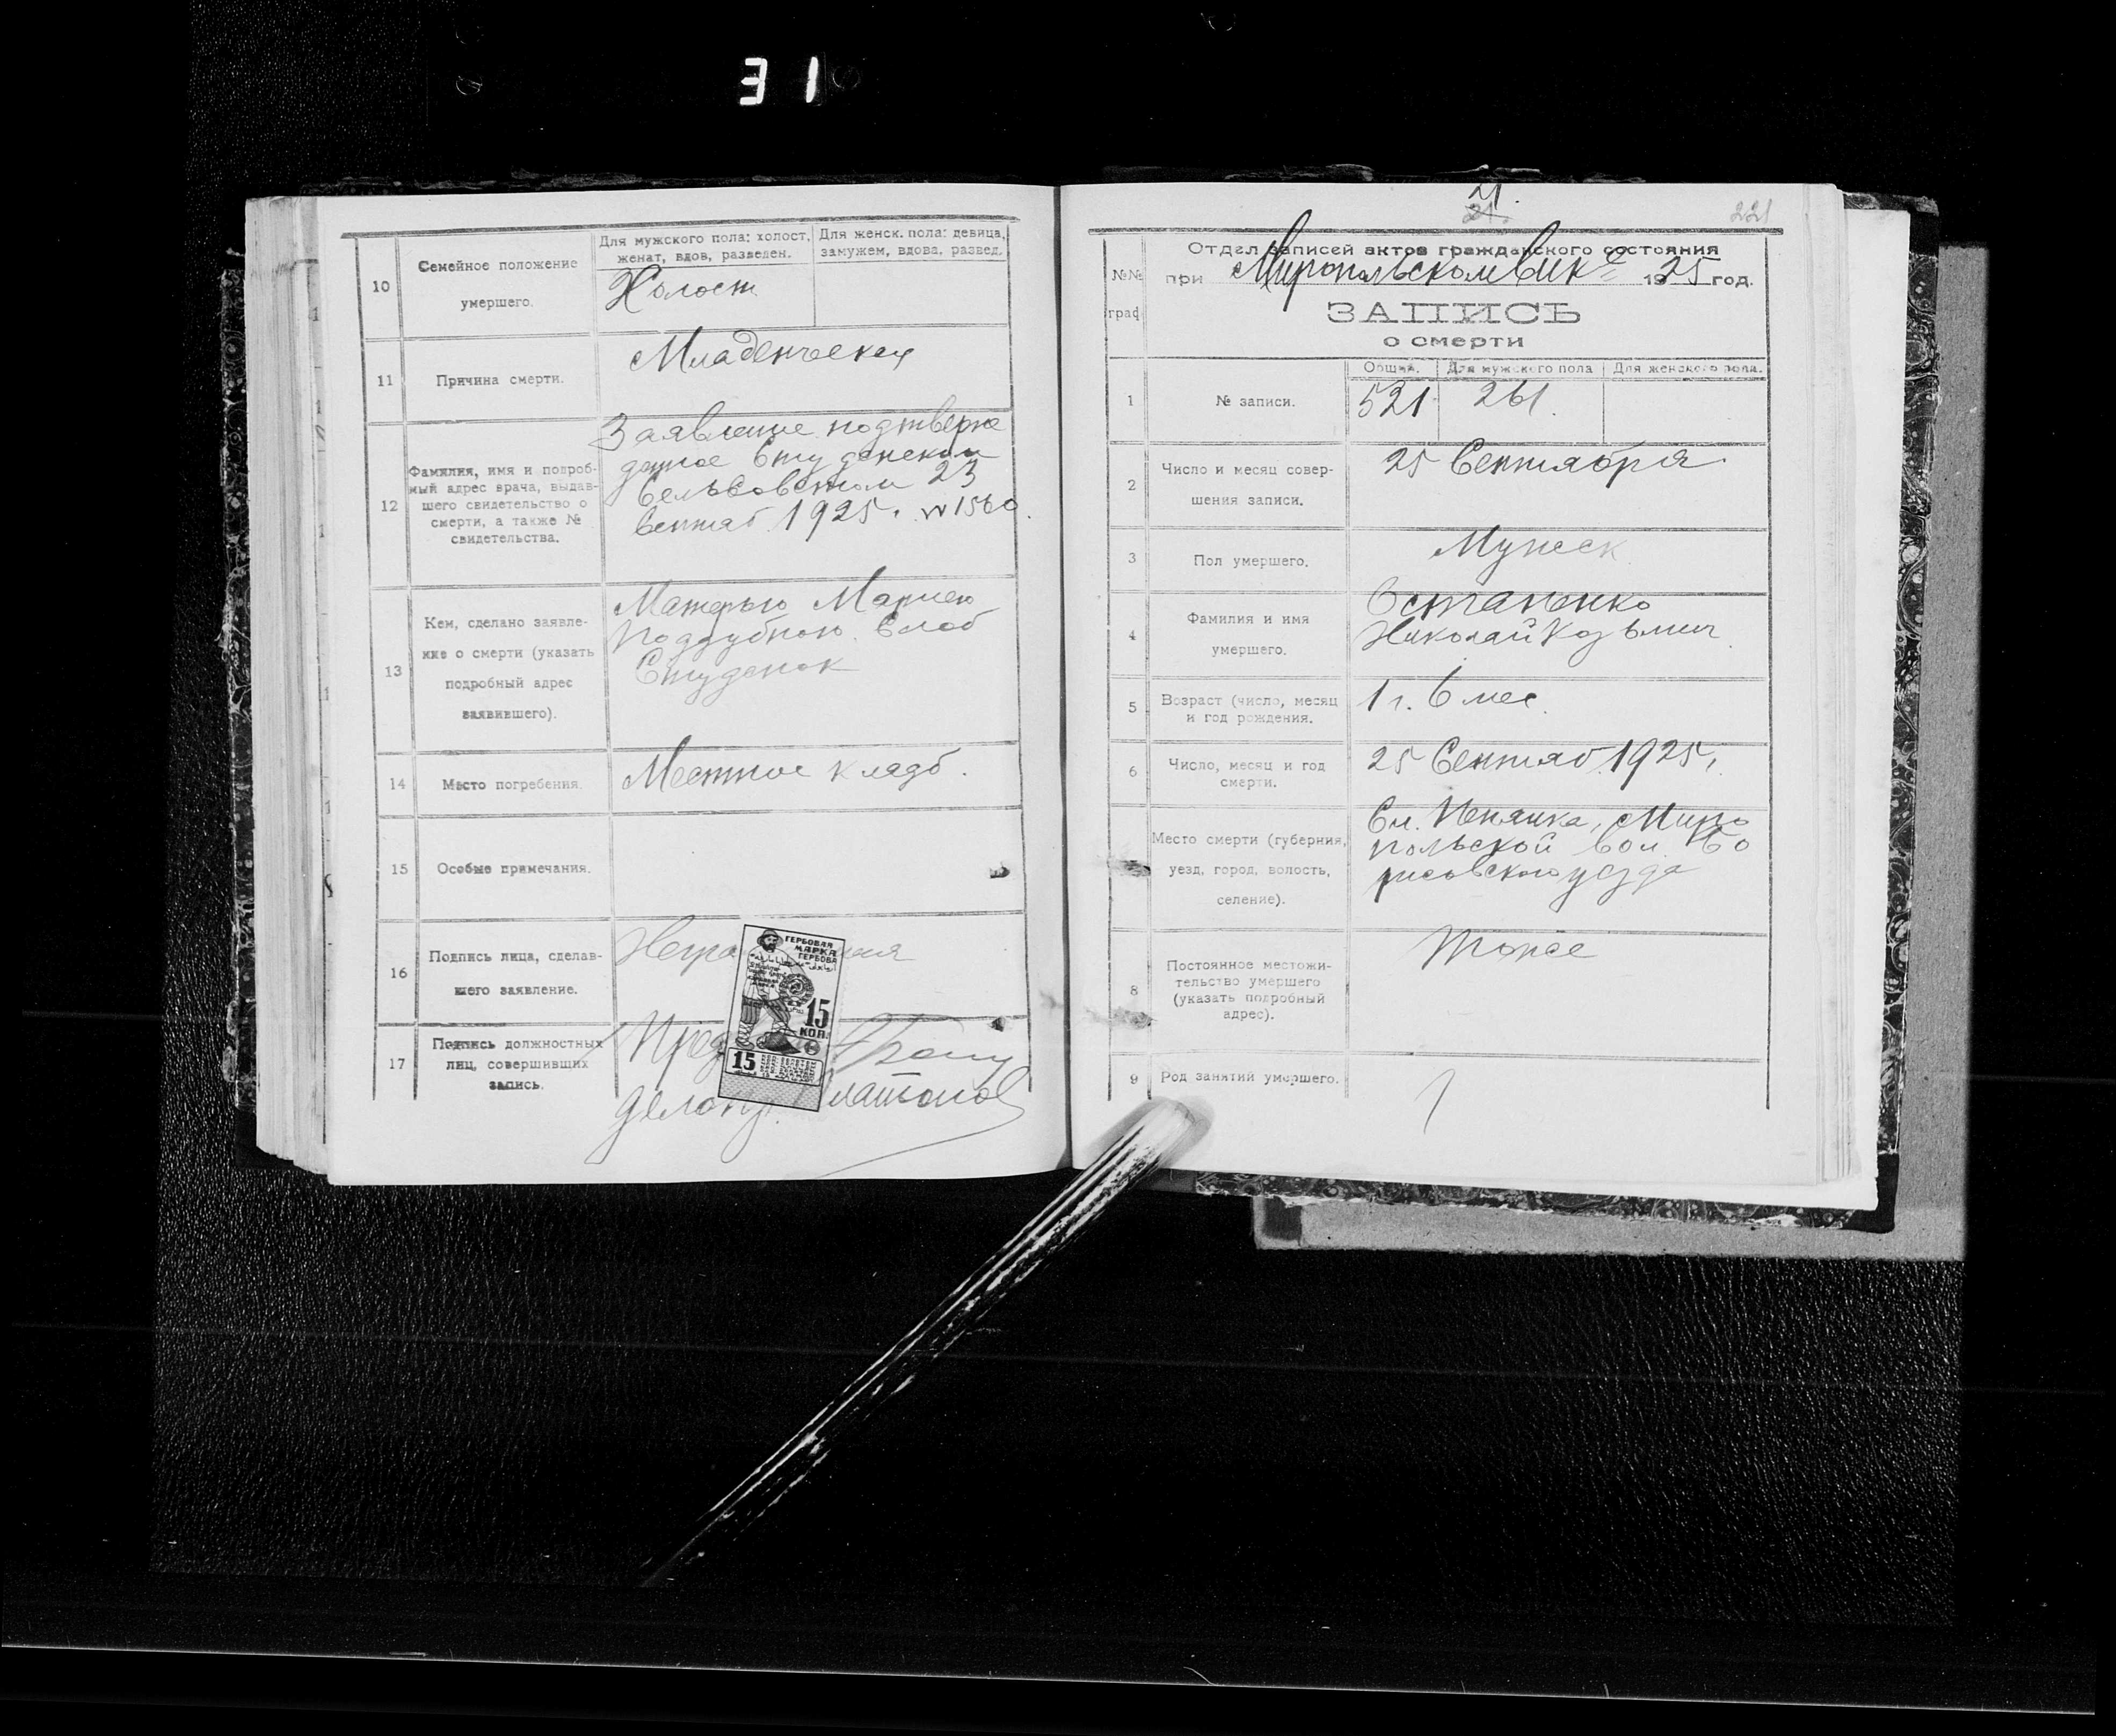 31
10
Семейное положение
умершего.
Для мужского пола: холост,
женат, вдов, разведен.
Для женск. пола: девица,
замужем, вдова, развед.
Холост
11
Причина смерти.
Младенческая
12
Фамилия, имя и подроб-
ный адрес врача, выдав-
шего свидетельство о
смерти, а также №
свидетельства.
Заявление подтверж
денное Студенским
Сельсоветом 23
Сентяб 1925 г. № 1560.
13
Кем, сделано заявле-
ние о смерти (указать
подробный адрес
заявившего).
Матерью Мариею
Поддубною. Слоб
Студенок
14
Место погребения.
Местное кладб.
15
Особые примечания.
16
Подпись лица, сделав-
шего заявление.
ГЕРБОВАЯ
МАРКА
ГЕРБОВА
15
КОП.
15
17
Подпись должностных
лиц, совершивших
запись.
Пред
Делопр
21.
21.
221
№№
граф
Отдел записей актов гражданского состояния
при Миропольском Вике 1925 год.
ЗАПИСЬ
о смерти
1
№ записи.
Общий.
Для мужского пола
Для женского пола.
521
261.
2
Число и месяц совер-
шения записи.
25 Сентября
3
Пол умершего.
Мужск
4
Фамилия и имя
умершего.
Остапенко
Николай Козьмич
5
Возраст (число, месяц
и год рождения.
1 г. 6 мес.
6
Число, месяц и год
смерти.
25 Сентяб. 1925 г.
Место смерти (губерния,
уезд, город, волость,
селение).
Сл. Пенянка, Миро
польской вол. Бо
рисовского уезда
8
Постоянное местожи-
тельство умершего
(указать подробный
адрес).
Тоже
9
Род занятий умершего.